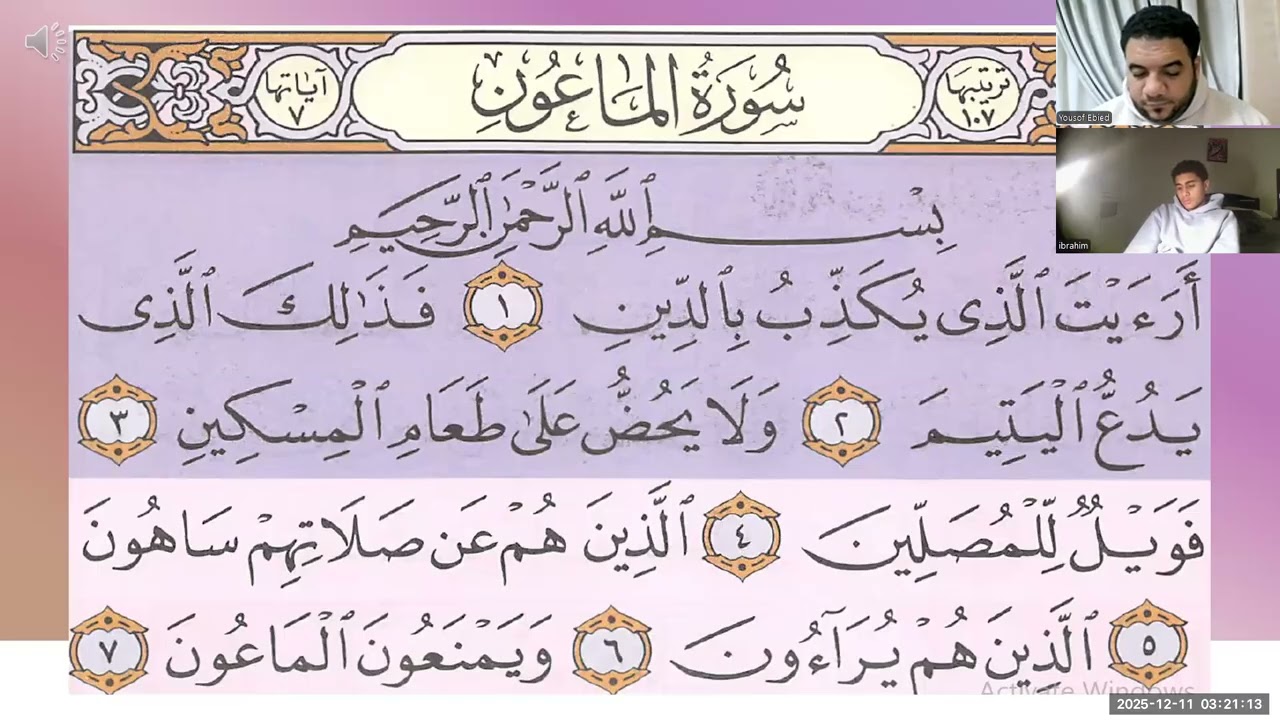 ترتيبها ١٠٧
سُورَةُ المَاعُونِ
آيَاتها ٧
Yousof Ebied
ibrahim
بِسْمِ ٱللَّهِ ٱلرَّحْمَٰنِ ٱلرَّحِيمِ
أَرَءَيْتَ ٱلَّذِى يُكَذِّبُ بِٱلدِّينِ ١ فَذَٰلِكَ ٱلَّذِى
يَدُعُّ ٱلْيَتِيمَ ٢ وَلَا يَحُضُّ عَلَىٰ طَعَامِ ٱلْمِسْكِينِ ٣
فَوَيْلٌ لِّلْمُصَلِّينَ ٤ ٱلَّذِينَ هُمْ عَن صَلَاتِهِمْ سَاهُونَ
٥ ٱلَّذِينَ هُمْ يُرَآءُونَ ٦ وَيَمْنَعُونَ ٱلْمَاعُونَ ٧
Activate Windows
2025-12-11 03:21:13